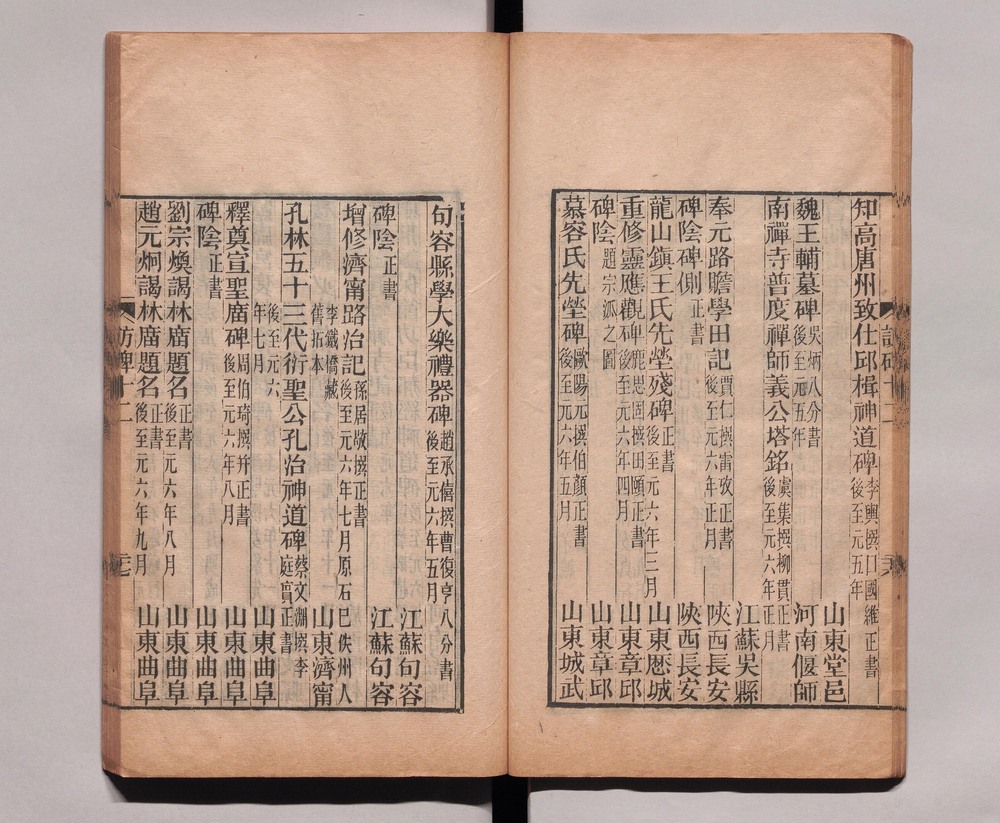 知高唐州致仕邱楫神道碑 李興撰□國維正書 後至元五年
山東堂邑
魏王輔墓碑 吳炳八分書 後至元五年
河南偃師
南禪寺普度禪師義公塔銘 虞集撰柳貫正書 後至元六年正月
江蘇吳縣
奉元路贍學田記 賈仁撰雷攸正書 後至元六年正月
陝西長安
碑陰碑側 正書
陝西長安
龍山鎮王氏先塋殘碑 正書 後至元六年三月
山東歷城
重修靈應觀碑 鹿思固撰田頤正書 後至元六年四月
山東章邱
碑陰 題宗派之圖
山東章邱
慕容氏先塋碑 歐陽元撰伯顏正書 後至元六年五月
山東城武
句容縣學大樂禮器碑 趙承僖撰曹復亨八分書 後至元六年五月
江蘇句容
碑陰 正書
江蘇句容
增修濟甯路治記 孫居敬撰正書 後至元六年七月原石已佚州人
李鐵橋藏 舊拓本
山東濟甯
孔林五十三代衍聖公孔治神道碑 蔡文淵撰李 庭實正書
後至元六 年七月
山東曲阜
釋奠宣聖廟碑 周伯琦撰并正書 後至元六年八月
山東曲阜
碑陰 正書
山東曲阜
劉宗煥謁林廟題名 正書 後至元六年八月
山東曲阜
趙元炯謁林廟題名 正書 後至元六年九月
山東曲阜
訪碑十二